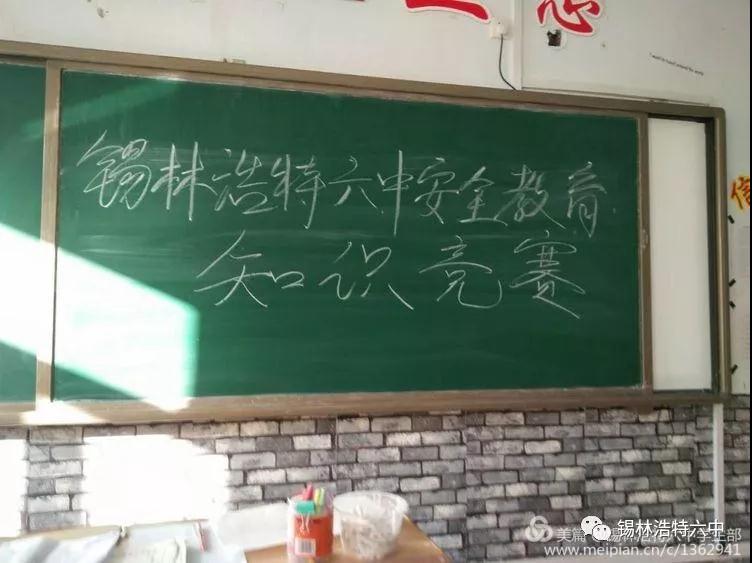 锡林浩特六中安全教育
知识竞赛
信
锡林浩特六中
www.meipian.cn/c/1362941